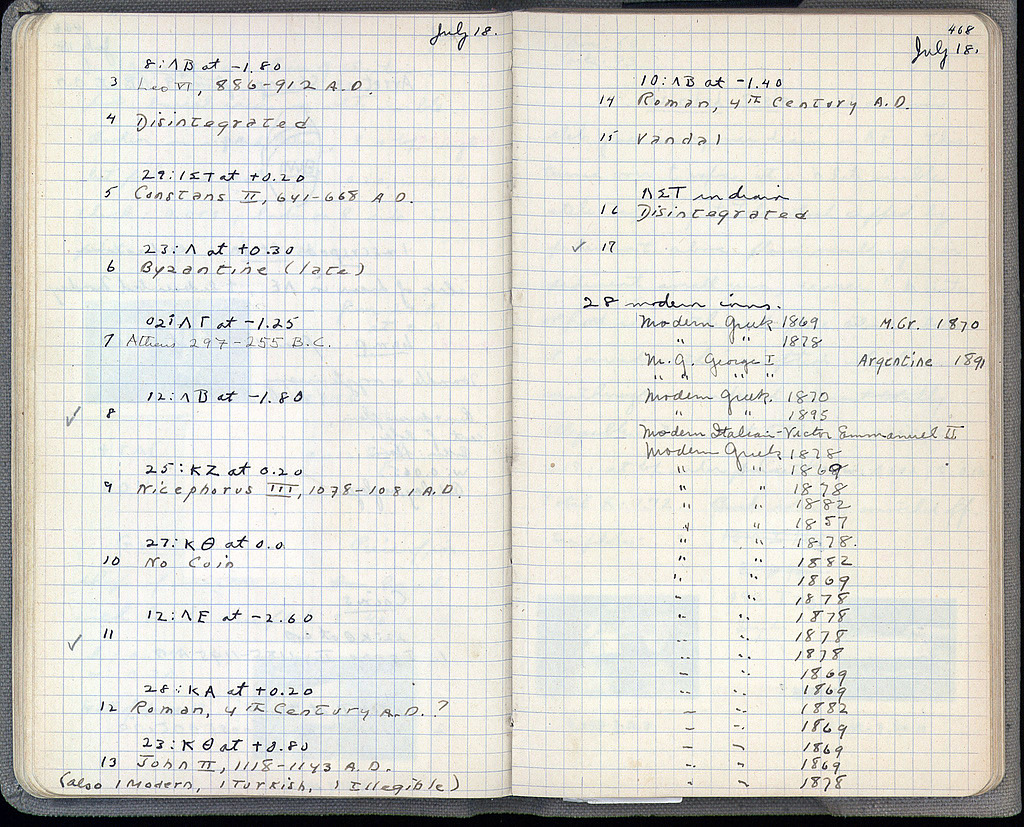 July 18.
8:ΛB at -1.80
3 Leo VI, 886-912 A.D.
4 Disintegrated
29:ΙΣΤ at +0.20
5 Constans II, 641-668 A D.
23:Λ at +0.30
6 Byzantine (late)
02:ΛΓ at -1.25
7 Athens 297-255 B.C.
12:ΛB at -1.80
✓ 8
25:KZ at 0.20
9 Nicephorus III, 1078-1081 A.D.
27:KΘ at 0.0
10 No Coin
12:ΛE at -2.60
✓ 11
28:KA at +0.20
12 Roman, 4th Century A.D.?
23:KΘ at +0.80
13 John II, 1118-1143 A.D.
(also 1 Modern, 1 Turkish, 1 Illegible)
468
July 18.
10:ΛB at -1.40
14 Roman, 4th Century A.D.
15 Vandal
ΛΣΤ in drain
16 Disintegrated
✓ 17
28 modern coins.
Modern Greek 1869 M.Gr. 1870
" " 1878
M.G. George I Argentine 1891
" " " "
Modern Greek 1870
" " 1895
Modern Italian-Victor Emmanuel II
Modern Greek 1878
" " 1869
" " 1878
" " 1882
" " 1857
" " 1878.
" " 1882
" " 1869
" " 1878
" " 1878
" " 1878
" " 1878
" " 1869
" " 1869
" " 1882
" " 1869
" " 1869
" " 1869
" " 1878